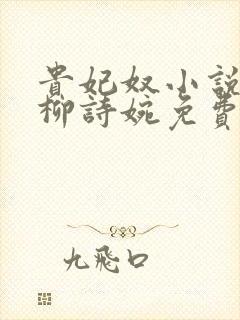 貴妃奴小說
柳詩婉免費
九飛口